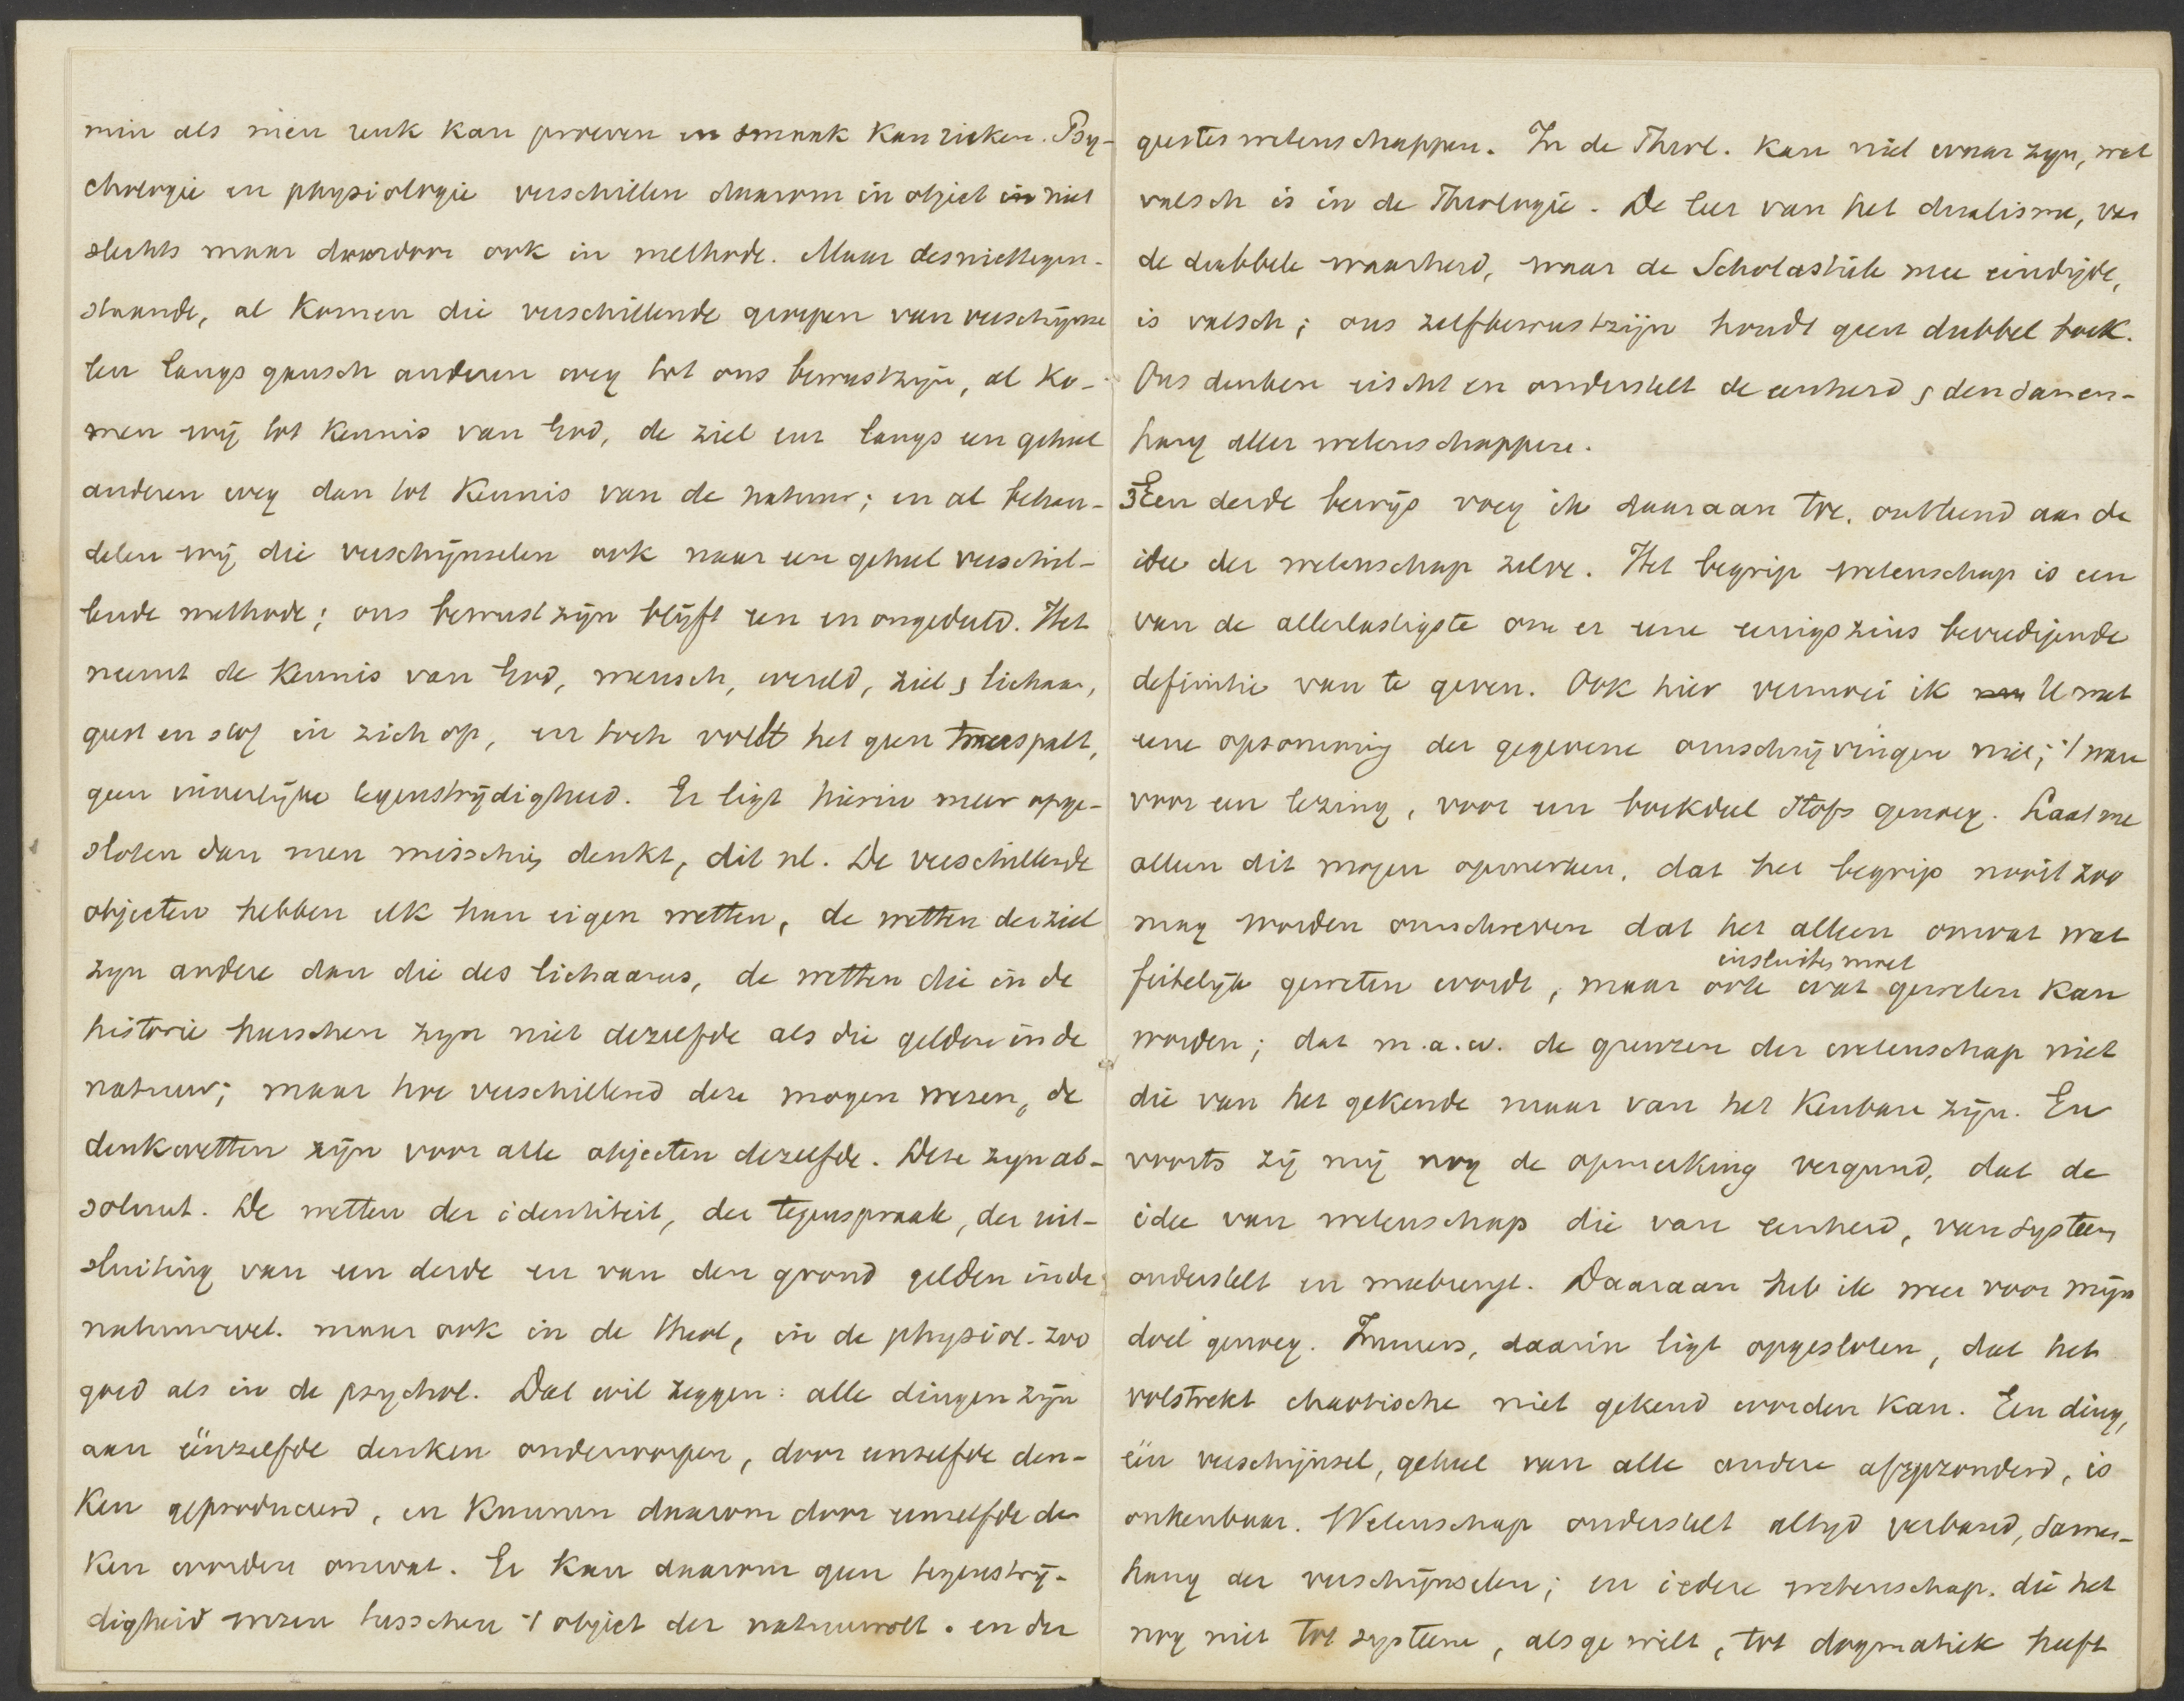 min als men reuk kan proeven en smaak kan rieken. Psy-
chologie en physiologie verschillen daarom in object en niet
slechts maar daardoor ook in methode. Maar desniettegen-
staande, al komen die verschillende groepen van verschijnse
len langs gansch anderen weg tot ons bewustzijn, al ko-
men wij tot kennis van God, de ziel enz langs een geheel
anderen weg dan tot kennis van de natuur; en al behan-
delen wij die verschijnselen ook naar een geheel verschil-
lende methode; ons bewustzijn blijft een en ongedeeld. Het
neemt de kennis van God, mensch, wereld, ziel & lichaam,
geest en stof in zich op, en toch voelt het geen tweespalt,
geen innerlijke tegenstrijdigheid. Er ligt hierin meer opge-
sloten dan men misschien denkt, dit nl. De verschillende
objecten hebben elk hun eigen wetten, de wetten der ziel
zijn andere dan die des lichaams, de wetten die in de
historie heerschen zijn niet dezelfde als die gelden in de
natuur; maar hoe verschillend deze mogen wezen, de
denkwetten zijn voor alle objecten dezelfde. Deze zijn ab-
soluut. De wetten der identiteit, der tegenspraak, der uit-
sluiting van een derde en van den grond gelden in de
natuurwet. maar ook in de theol, in de physiol. zoo
goed als in de psychol. Dat wil zeggen: alle dingen zijn
aan éénzelfde denken onderworpen, door eenzelfde den-
ken geproduceerd, en kunnen daarom door eenzelfde den
ken worden omvat. Er kan daarom geen tegenstrij-
digheid wezen tusschen 't object der natuurwet. en der
geestes wetenschappen. In de Theol. kan niet waar zijn, wat
valsch is in de Theologie. De leer van het dualisme, van
de dubbele waarheid, waar de Scholastiek mee eindigde,
is valsch; ons zelfbewustzijn houdt geen dubbel boek.
Ons denken eischt en onderstelt de eenheid & den samen-
hang aller wetenschappen.
3 Een derde bewijs voeg ik daaraan toe. ontleend aan de
idee der wetenschap zelve. Het begrip wetenschap is een
van de allerlastigste om er eene eenigszins bevredigende
definitie van te geven. Ook hier vermoei ik U met
eene opsomming der gegevene omschrijvingen niet; 't ware
voor een lezing, voor een boekdeel stofs genoeg. Laat me
alleen dit mogen opmerken, dat het begrip nooit zoo
mag worden omschreven dat het alleen omvat wat
insluiten moet
feitelijk geweten wordt, maar ook wat geweten kan
worden; dat m.a.w. de grenzen der wetenschap niet
die van het gekende maar van het kenbare zijn. En
voorts zij mij nog de opmerking vergund, dat de
idee van wetenschap die van eenheid, van systeem
onderstelt en meebrengt. Daaraan heb ik weer voor mijn
doel genoeg. Immers, daarin ligt opgesloten, dat het
volstrekt chaotische niet gekend worden kan. Een ding,
één verschijnsel, geheel van alle andere afgezonderd, is
onkenbaar. Wetenschap onderstelt altijd verband, samen-
hang der verschijnselen; en iedere wetenschap. die het
nog niet tot systeem, als ge wilt, tot dogmatiek heeft